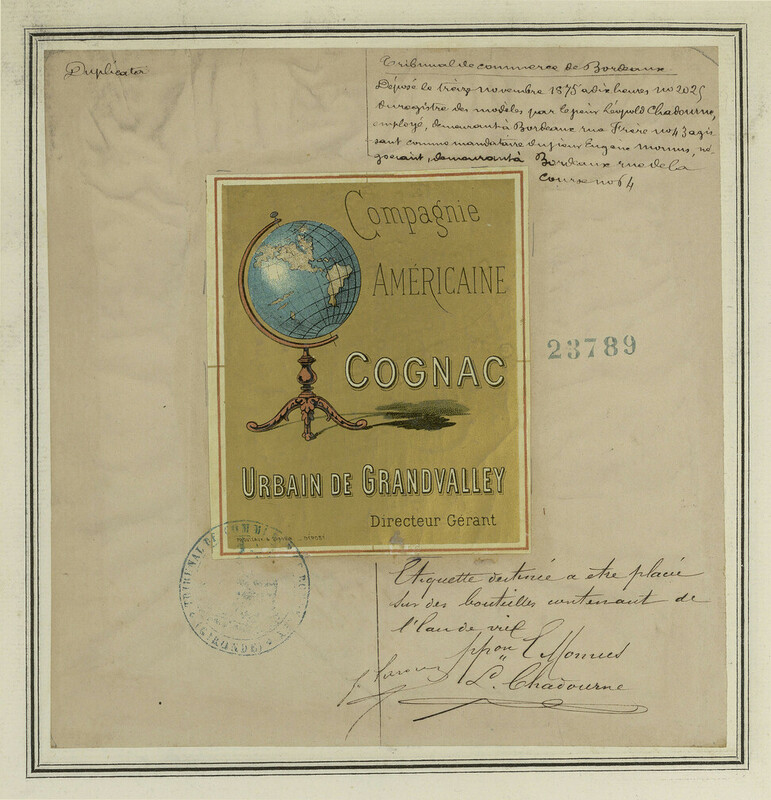 Duplicata
Tribunal de commerce de Bordeaux
Déposé le treize novembre 1875 à dix heures no 2025
du registre des modèles par le sieur Léopold Chadourne,
employé, demeurant à Bordeaux rue Frère no 43 agis
sant comme mandataire du sieur Eugène Monnus, né
gociant, demeurant à Bordeaux rue de la
Course no 64
Compagnie
AMÉRICAINE
COGNAC
23789
URBAIN DE GRANDVALLEY
Directeur Gérant
DÉPOSÉ
TRIBUNAL DE COMMERCE DE BORDEAUX
(GIRONDE)
Etiquette destinée a etre placée
sur des bouteilles contenant de
l'eau de vie
ppon E Monnus
L. Chadourne